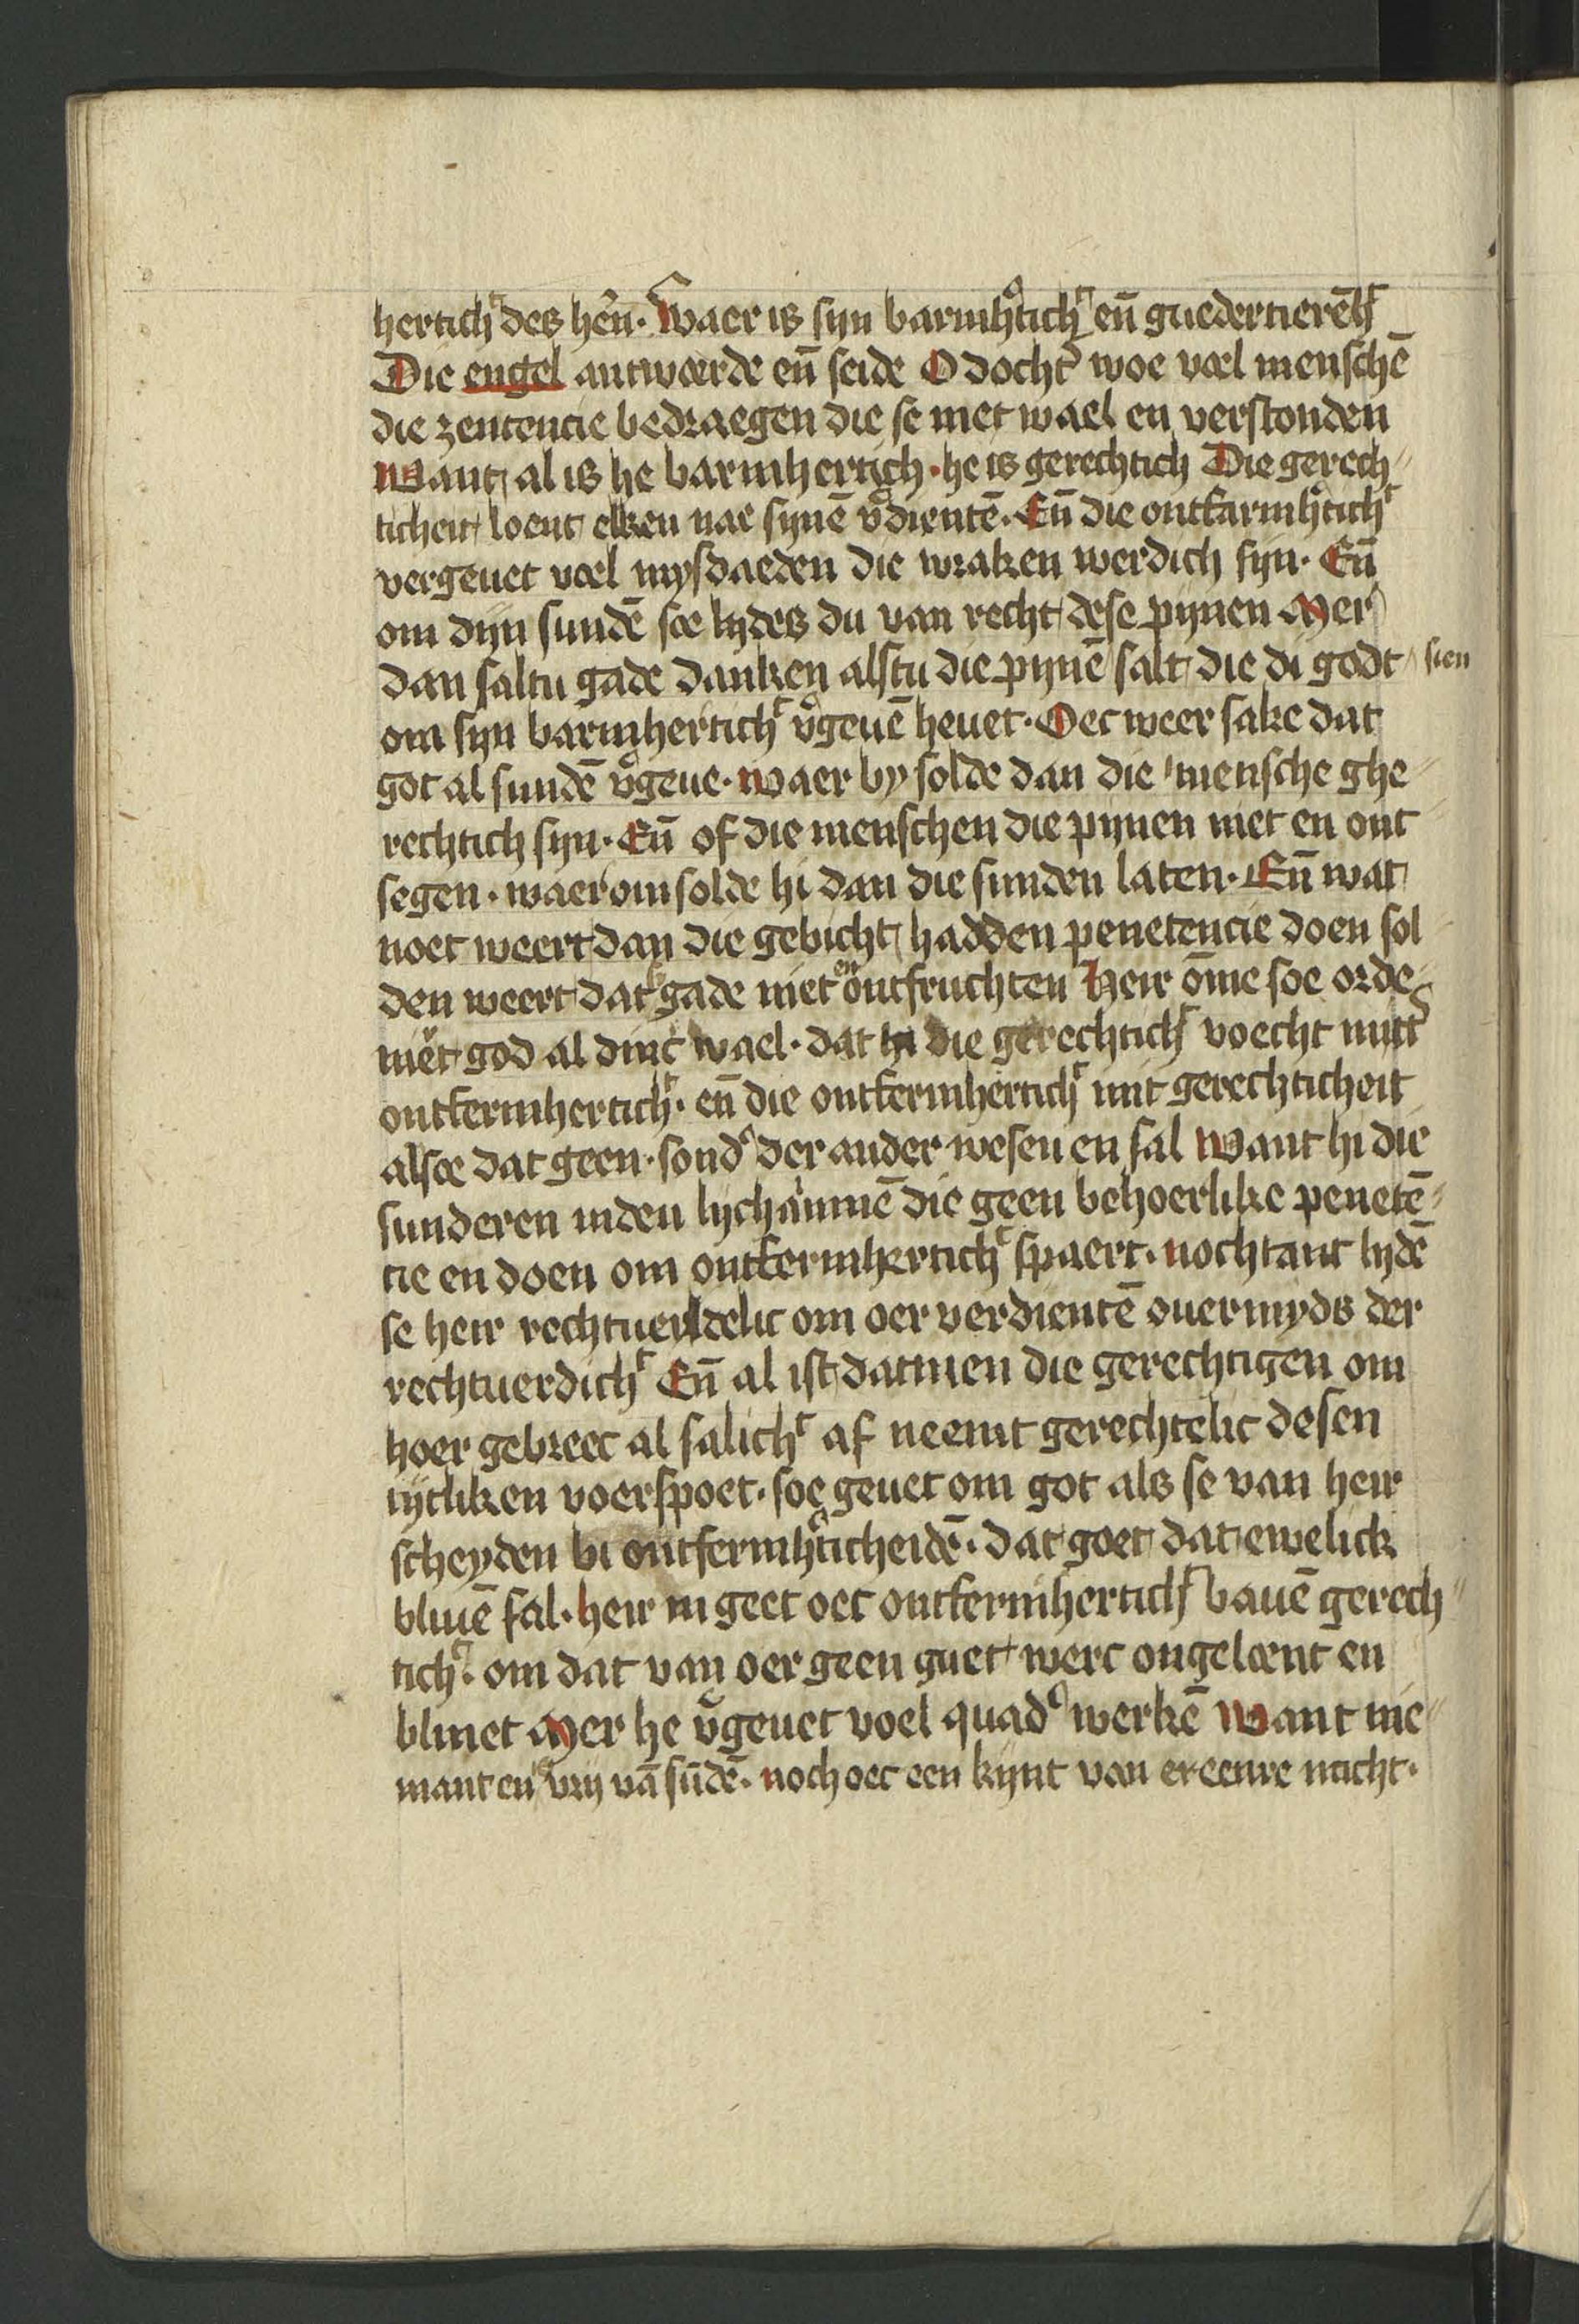 herticht des hēn. Waer is syn barmhtich en̄ guedertierēh
Die engel antwoerde en̄ seide O docht woe voel menschē
die zentencie bedraegen die se niet wael en verstonden
Want al is he barmhertich. he is gerechtich Die gerech
ticheit loent elken nae synē vdientē. En̄ die ontfarmhtich
vergeuet voel mysdaeden die wraken werdich syn. En̄
om dyn sundē soe lydes du van recht dese pynen Mer
dan saltu gade danken alstu die pynē salt die di godt sien
om syn barmherticht vgeuē heuet. Oec weer sake dat
got al sundē vgeue. waer by solde dan die mensche ghe
rechtich syn. En̄ of die menschen die pynen niet en ont
segen. waer om solde hi dan die sunden laten. En̄ wat
noet weert dan die gebicht hadden penetencie doen sol
den weert dat gade niet en ontfruchten Heir ōme soe orde
niert god al dinc wael. dat hi die gerechticht voecht mitt
ontfermherticht. en̄ die ontfermherticht mit gerechticheit
alsoe dat geen. sond der ander wesen en sal Want hi die
sunderen inden lychāmē die geen behoerlike penetē
cie en doen om ontfermherticht spaert. nochtant lydē
se heir rechtuerdelic om oer verdientē ouermyds der
rechtuerdicht En̄ al ist datmen die gerechtigen om
hoer gebreec al salicht af neemt gerechtelic desen
tytliken voerspoet. soe geuet om got als se van heir
scheyden bi ontfermhticheidē. dat goet dat ewelick
bliuē sal. heir in geet oec ontfermherticht bauē gerech
ticht. om dat van oer geen guet werc ongeloent en
bliuet Mer he vgeuet voel quad werkē Want nie
mant en vry vā sūdē. noch oec een kynt van ere eenre nacht.